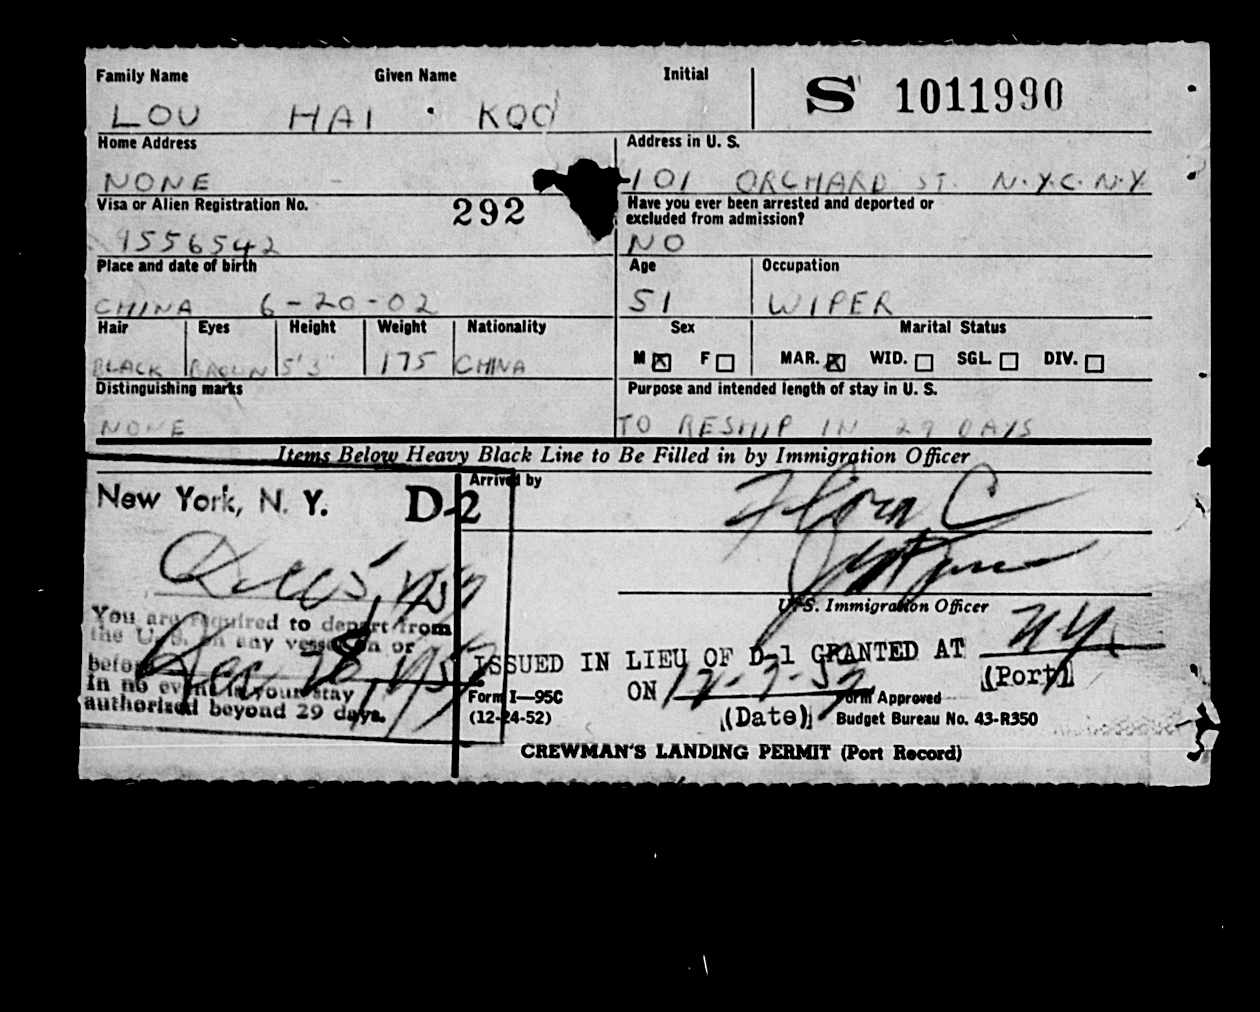 Family Name Given Name Initial
S 1011990
LOU HAI · KOO
Home Address Address in U. S.
NONE - 101 ORCHARD ST. N.Y.C. N.Y.
Visa or Alien Registration No. 292 Have you ever been arrested and deported or
excluded from admission?
9556542 NO
Place and date of birth Age Occupation
CHINA 6-20-02 51 WIPER
Hair Eyes Height Weight Nationality Sex Marital Status
BLACK BROWN 5'3" 175 CHINA M ☒ F ☐ MAR. ☒ WID. ☐ SGL. ☐ DIV. ☐
Distinguishing marks Purpose and intended length of stay in U. S.
NONE TO RESHIP IN 29 DAYS
Items Below Heavy Black Line to Be Filled in by Immigration Officer
Arrived by
New York, N. Y. D-2
Flora C
Dec 5, 1957
U. S. Immigration Officer
You are required to depart from
the U. S. on any vessel on or
before Dec 28, 1957
In no event is your stay
authorized beyond 29 days.
ISSUED IN LIEU OF D-1 GRANTED AT NY
(Port)
ON 12-7-57
(Date)
Form I—95C
(12-24-52)
Form Approved
Budget Bureau No. 43-R350
CREWMAN'S LANDING PERMIT (Port Record)